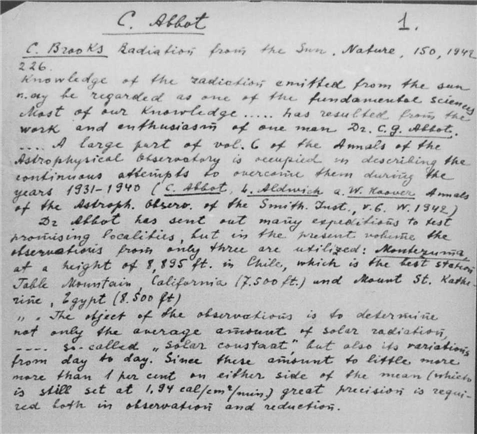 C. Abbot 1.
C. Brooks Radiation from the Sun. Nature, 150, 1942
226.
Knowledge of the radiation emitted from the sun
may be regarded as one of the fundamental sciences
Most of our knowledge ..... has resulted from the
work and enthusiasm of one man Dr. C.G. Abbot.
.... A large part of vol. 6 of the Annals of the
Astrophysical Observatory is occupied in describing the
continuous attempts to overcome them during the
years 1931-1940 (C. Abbot, L. Aldwich a. W. Hoover Annals
of the Astroph. Observ. of the Smith. Inst., v. 6. W. 1942)
Dr Abbot has sent out many expeditions to test
promising localities, but in the present volume the
observations from only three are utilized: Montezuma
at a height of 8,895 ft. in Chile, which is the best station,
Table Mountain, California (7.500 ft.) und Mount St. Kathe-
rine, Egypt (8.500 ft)
„ „ The object of the observations is to determine
not only the average amount of solar radiation,
.... so-called „solar constant" but also its variations
from day to day. Since these amount to little more
more than 1 per cent on either side of the mean (which
is still set at 1,94 cal/cm²/min,) great precision is requi-
red both in observation and reduction.